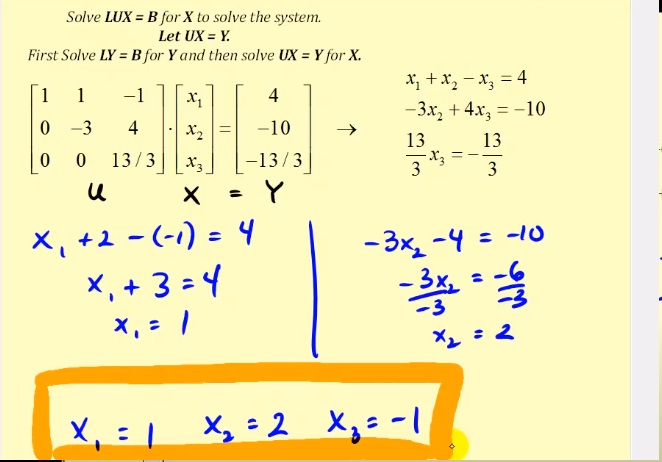 Solve LUX = B for X to solve the system.
Let UX = Y.
First Solve LY = B for Y and then solve UX = Y for X.
[1 1 −1; 0 −3 4; 0 0 13/3] · [x₁; x₂; x₃] = [4; −10; −13/3] →
x₁ + x₂ − x₃ = 4
−3x₂ + 4x₃ = −10
13/3 x₃ = − 13/3
u x = Y
x₁ + 2 − (−1) = 4
x₁ + 3 = 4
x₁ = 1
−3x₂ − 4 = −10
−3x₂/−3 = −6/−3
x₂ = 2
x₁ = 1 x₂ = 2 x₃ = −1